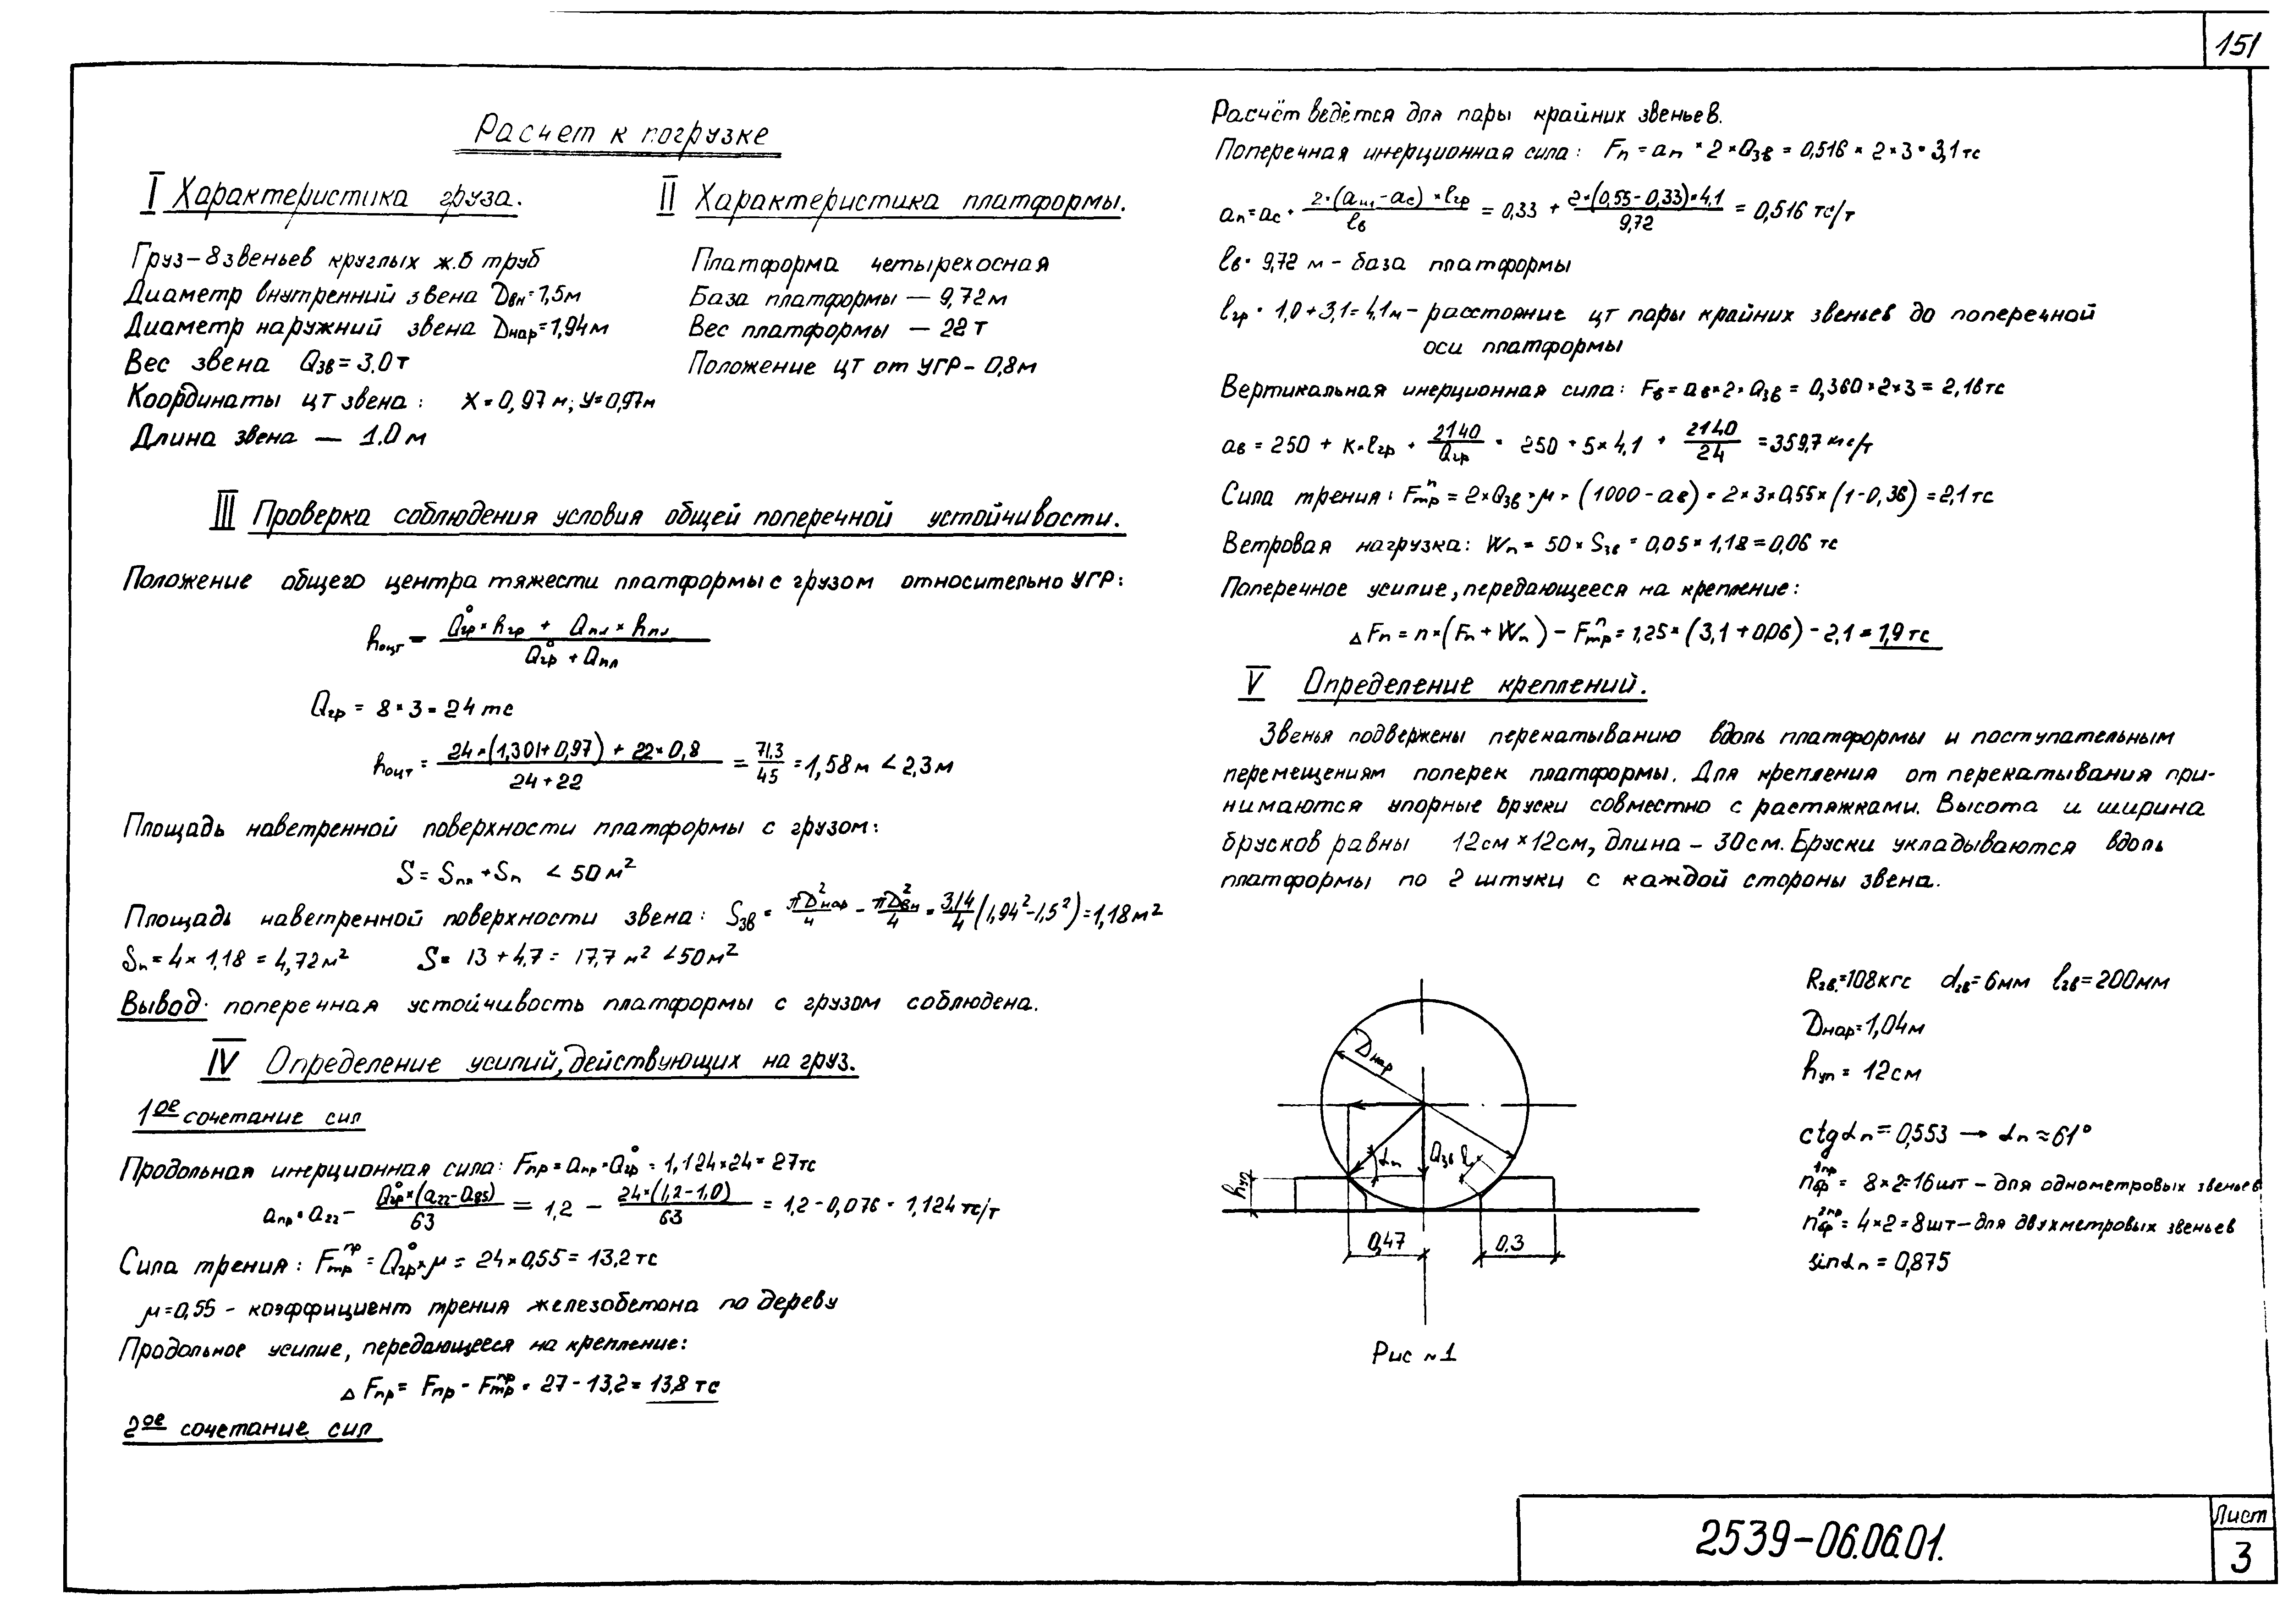 151
Расчет к погрузке
I Характеристика груза.
Груз-8 звеньев круглых ж.б труб
Диаметр внутренний звена Dвн=1,5м
Диаметр наружний звена Dнар=1,94м
Вес звена Qзв=3.0т
Координаты цт звена: X=0,97м; У=0,97м
Длина звена — 1.0м
II Характеристика платформы.
Платформа четырехосная
База платформы — 9,72м
Вес платформы — 22т
Положение цт от УГР- 0,8м
III Проверка соблюдения условия общей поперечной устойчивости.
Положение общего центра тяжести платформы с грузом относительно УГР:
hоцт = (Q°гр × hгр + Qпл × hпл) / (Q°гр + Qпл)
Qгр = 8 × 3 = 24 тс
hоцт = (24×(1,301+0,97) + 22×0,8) / (24+22) = 71.3/45 = 1,58м < 2,3м
Площадь наветренной поверхности платформы с грузом:
S = Sпл + Sп < 50м²
Площадь наветренной поверхности звена: Sзв = πD²нар/4 - πD²вн/4 = 3,14/4 (1,94²-1,5²) = 1,18м²
Sп = 4 × 1,18 = 4,72м² S = 13 + 4,7 = 17,7 м² < 50м²
Вывод: поперечная устойчивость платформы с грузом соблюдена.
IV Определение усилий, действующих на груз.
1ое сочетание сил
Продольная инерционная сила: Fпр = aпр × Q°гр = 1,124×24 = 27тс
aпр = a22 - Q°гр×(a22-a85)/63 = 1,2 - 24×(1,2-1,0)/63 = 1,2 - 0,076 = 1,124 тс/т
Сила трения: Fпртр = Q°гр × μ = 24×0,55 = 13,2тс
μ=0,55 - коэффициент трения железобетона по дереву
Продольное усилие, передающееся на крепление:
ΔFпр = Fпр - Fпртр = 27 - 13,2 = 13,8 тс
2ое сочетание сил
Расчёт ведётся для пары крайних звеньев.
Поперечная инерционная сила: Fп = aп × 2 × Qзв = 0,516 × 2 × 3 = 3,1тс
aп = aс + 2×(aш-aс)×lгр/lв = 0,33 + 2×(0,55-0,33)×4,1/9,72 = 0,516 тс/т
lв = 9,72 м - база платформы
lгр = 1,0 + 3,1 = 4,1м - расстояние цт пары крайних звеньев до поперечной
оси платформы
Вертикальная инерционная сила: Fв = aв×2×Qзв = 0,360×2×3 = 2,16тс
aв = 250 + K×lгр + 2140/Qгр = 250 + 5×4,1 + 2140/24 = 359,7 кгс/т
Сила трения: Fптр = 2×Qзв×μ×(1000-aв) = 2×3×0,55×(1-0,36) = 2,1тс
Ветровая нагрузка: Wп = 50 × Sзв = 0,05×1,18 = 0,06 тс
Поперечное усилие, передающееся на крепление:
ΔFп = n×(Fп + Wп) - Fптр = 1,25×(3,1 + 0,06) - 2,1 = 1,9тс
V Определение креплений.
Звенья подвержены перекатыванию вдоль платформы и поступательным
перемещениям поперек платформы. Для крепления от перекатывания при-
нимаются упорные бруски совместно с растяжками. Высота и ширина
брусков равны 12см×12см, длина - 30см. Бруски укладываются вдоль
платформы по 2 штуки с каждой стороны звена.
Dнар
αп
Qзв
l
hуп
0,47
0.3
Рис №1
Rгв.=108кгс dгв=6мм lгв=200мм
Dнар=1,04м
hуп = 12см
ctgαп = 0,553 → αп ≈ 61°
n1прф = 8×2=16шт - для однометровых звеньев
n2прф = 4×2=8шт - для двухметровых звеньев
sinαп = 0,875
2539-06.06.01.
Лист
3